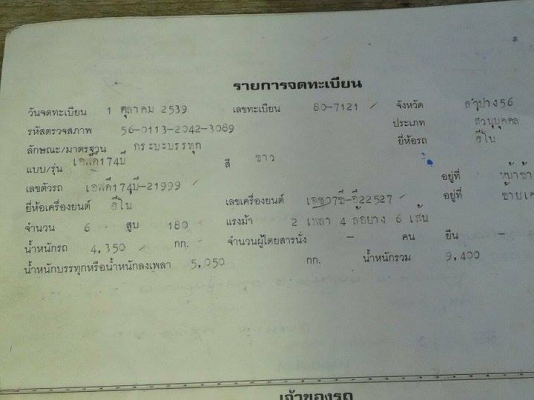 รายการจดทะเบียน
วันจดทะเบียน 1 ตุลาคม 2539 เลขทะเบียน 80-7121 จังหวัด ลำปาง56
รหัสตรวจสภาพ 56-0113-2042-3089 ประเภท ส่วนบุคคล
ลักษณะ/มาตรฐาน กระบะบรรทุก ยี่ห้อรถ ฮีโน่
แบบ/รุ่น เอฟดี174บี สี ขาว
เลขตัวรถ เอฟดี174บี-21999 อยู่ที่
ยี่ห้อเครื่องยนต์ ฮีโน่ เลขเครื่องยนต์ เอช07ซี-ซี22527 อยู่ที่
จำนวน 6 สูบ 180 แรงม้า 2 เพลา 4 ล้อยาง 6 เส้น
น้ำหนักรถ 4,350 กก. จำนวนผู้โดยสารนั่ง - คน ยืน -
น้ำหนักบรรทุกหรือน้ำหนักลงเพลา 5,050 กก. น้ำหนักรวม 9,400
เจ้าของรถ